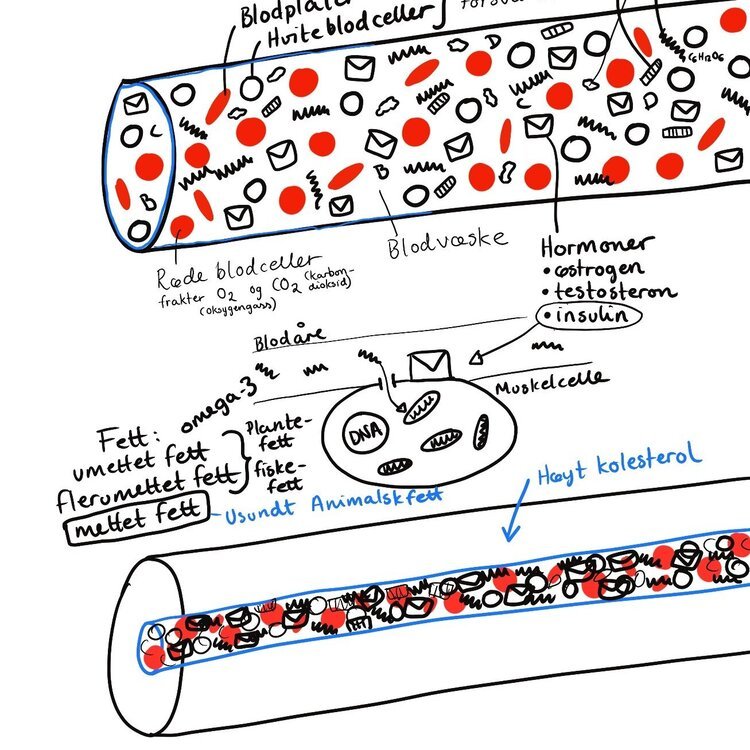 Blodplater
Hvite blodceller
C₆H₁₂O₆
C
C
B
D
D
B
Røde blodceller
frakter O₂ og CO₂ (karbon-
dioksid)
(oksygengass)
Blodvæske
Hormoner
• østrogen
• testosteron
• insulin
Blodåre
omega-3
Muskelcelle
DNA
Fett:
umettet fett
flerumettet fett
Plante-
fett
fiske-
fett
mettet fett
Usundt Animalsk fett
Høyt kolesterol